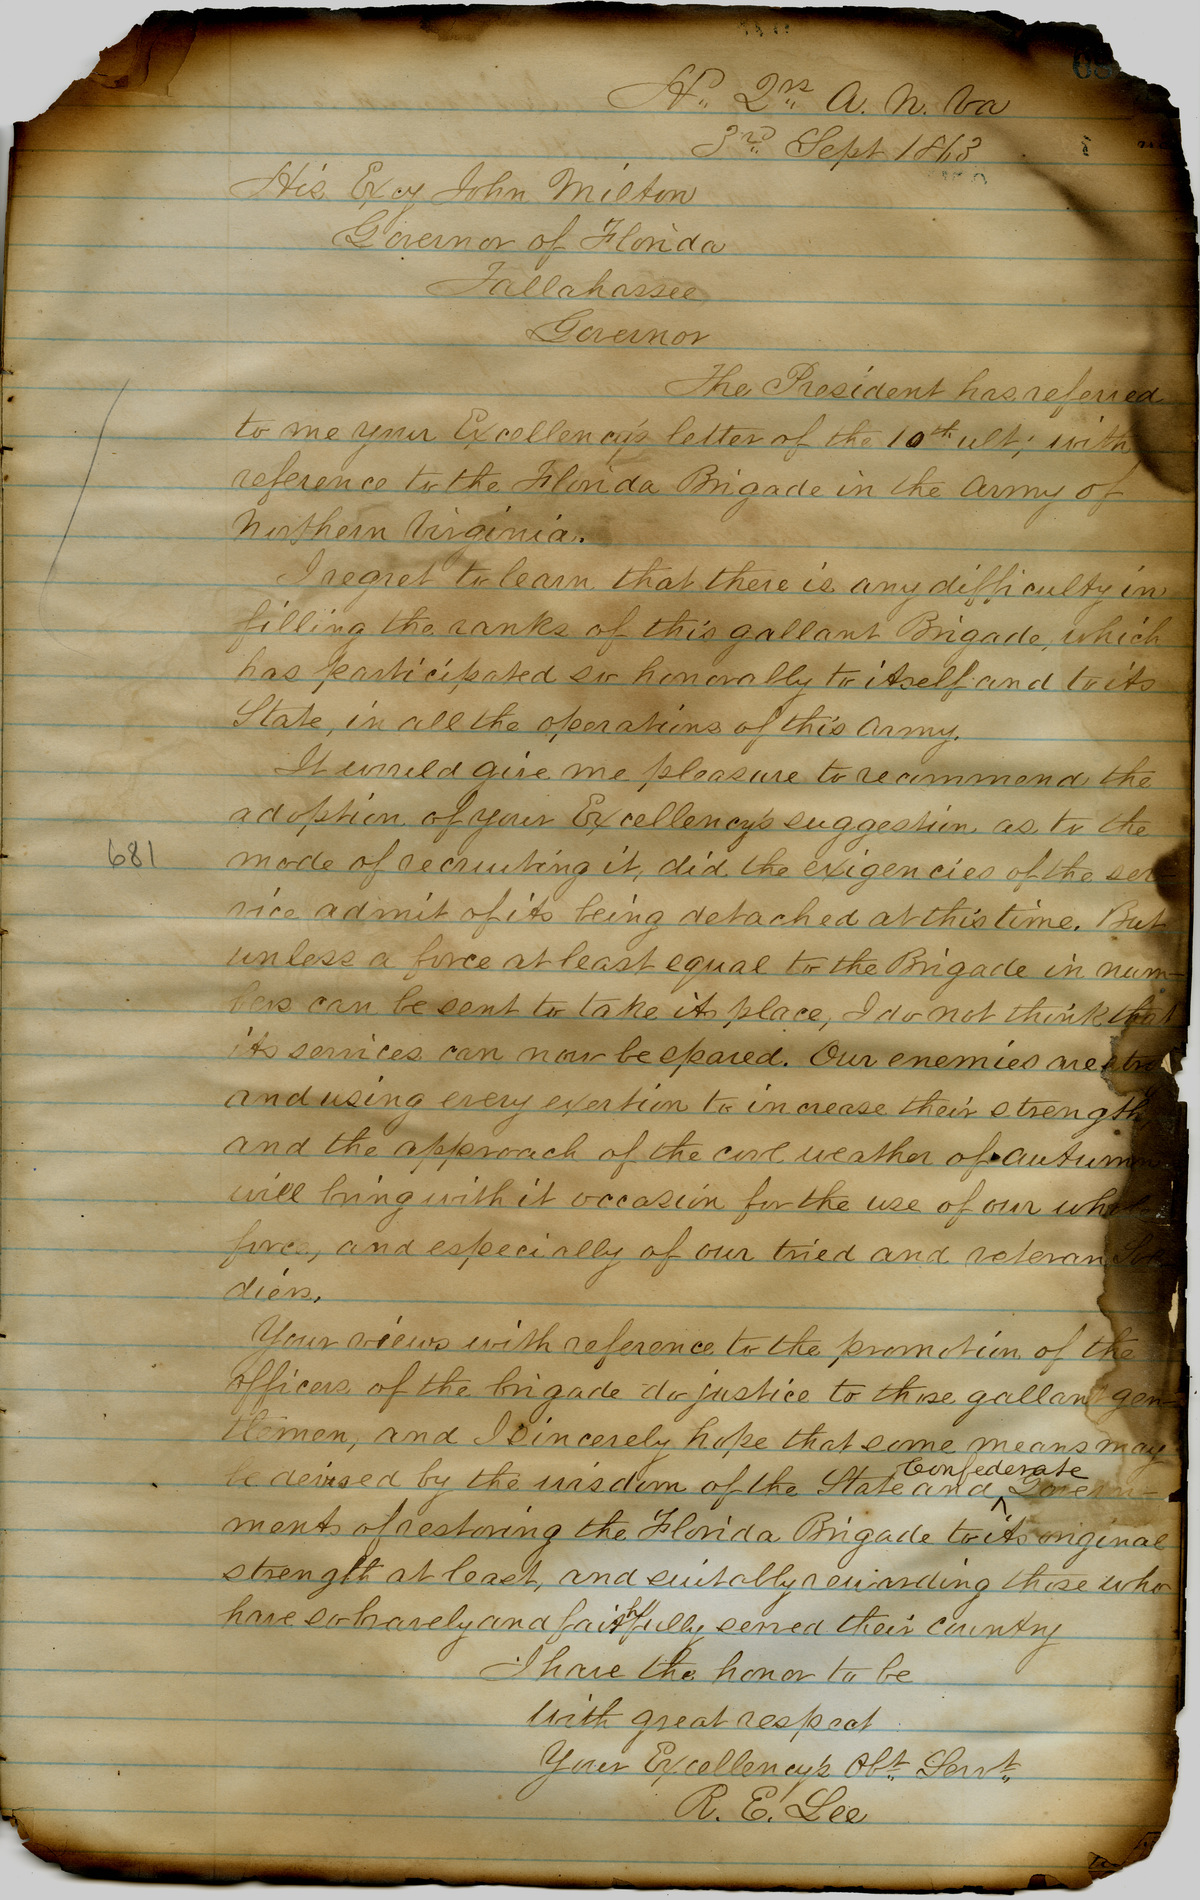 Hd. Qrs. A. N. Va
3rd. Sept 1863
His Excy John Milton
Governor of Florida
Tallahassee
Governor
The President has referred
to me your Excellency's letter of the 10th ult; with
reference to the Florida Brigade in the Army of
Northern Virginia.
I regret to learn that there is any difficulty in
filling the ranks of this gallant Brigade, which
has participated so honorably to itself and to its
State, in all the operations of this Army.
It would give me pleasure to recommend the
adoption of your Excellency's suggestion as to the
681
mode of recruiting it, did the exigencies of the ser-
vice admit of its being detached at this time. But
unless a force at least equal to the Brigade in num-
bers can be sent to take its place, I do not think that
its services can now be spared. Our enemies are
and using every exertion to increase their strength,
and the approach of the cool weather of autumn
will bring with it occasion for the use of our whole
force, and especially of our tried and veteran Sol
diers.
Your views with reference to the promotion of the
officers of the brigade do justice to those gallant gen-
tlemen, and I sincerely hope that some means may
be devised by the wisdom of the State and ^ Confederate Govern-
ments of restoring the Florida Brigade to its original
strength at least, and suitably rewarding those who
have so bravely and faithfully served their country
I have the honor to be
with great respect
Your Excellency's Obt. Servt.
R. E. Lee